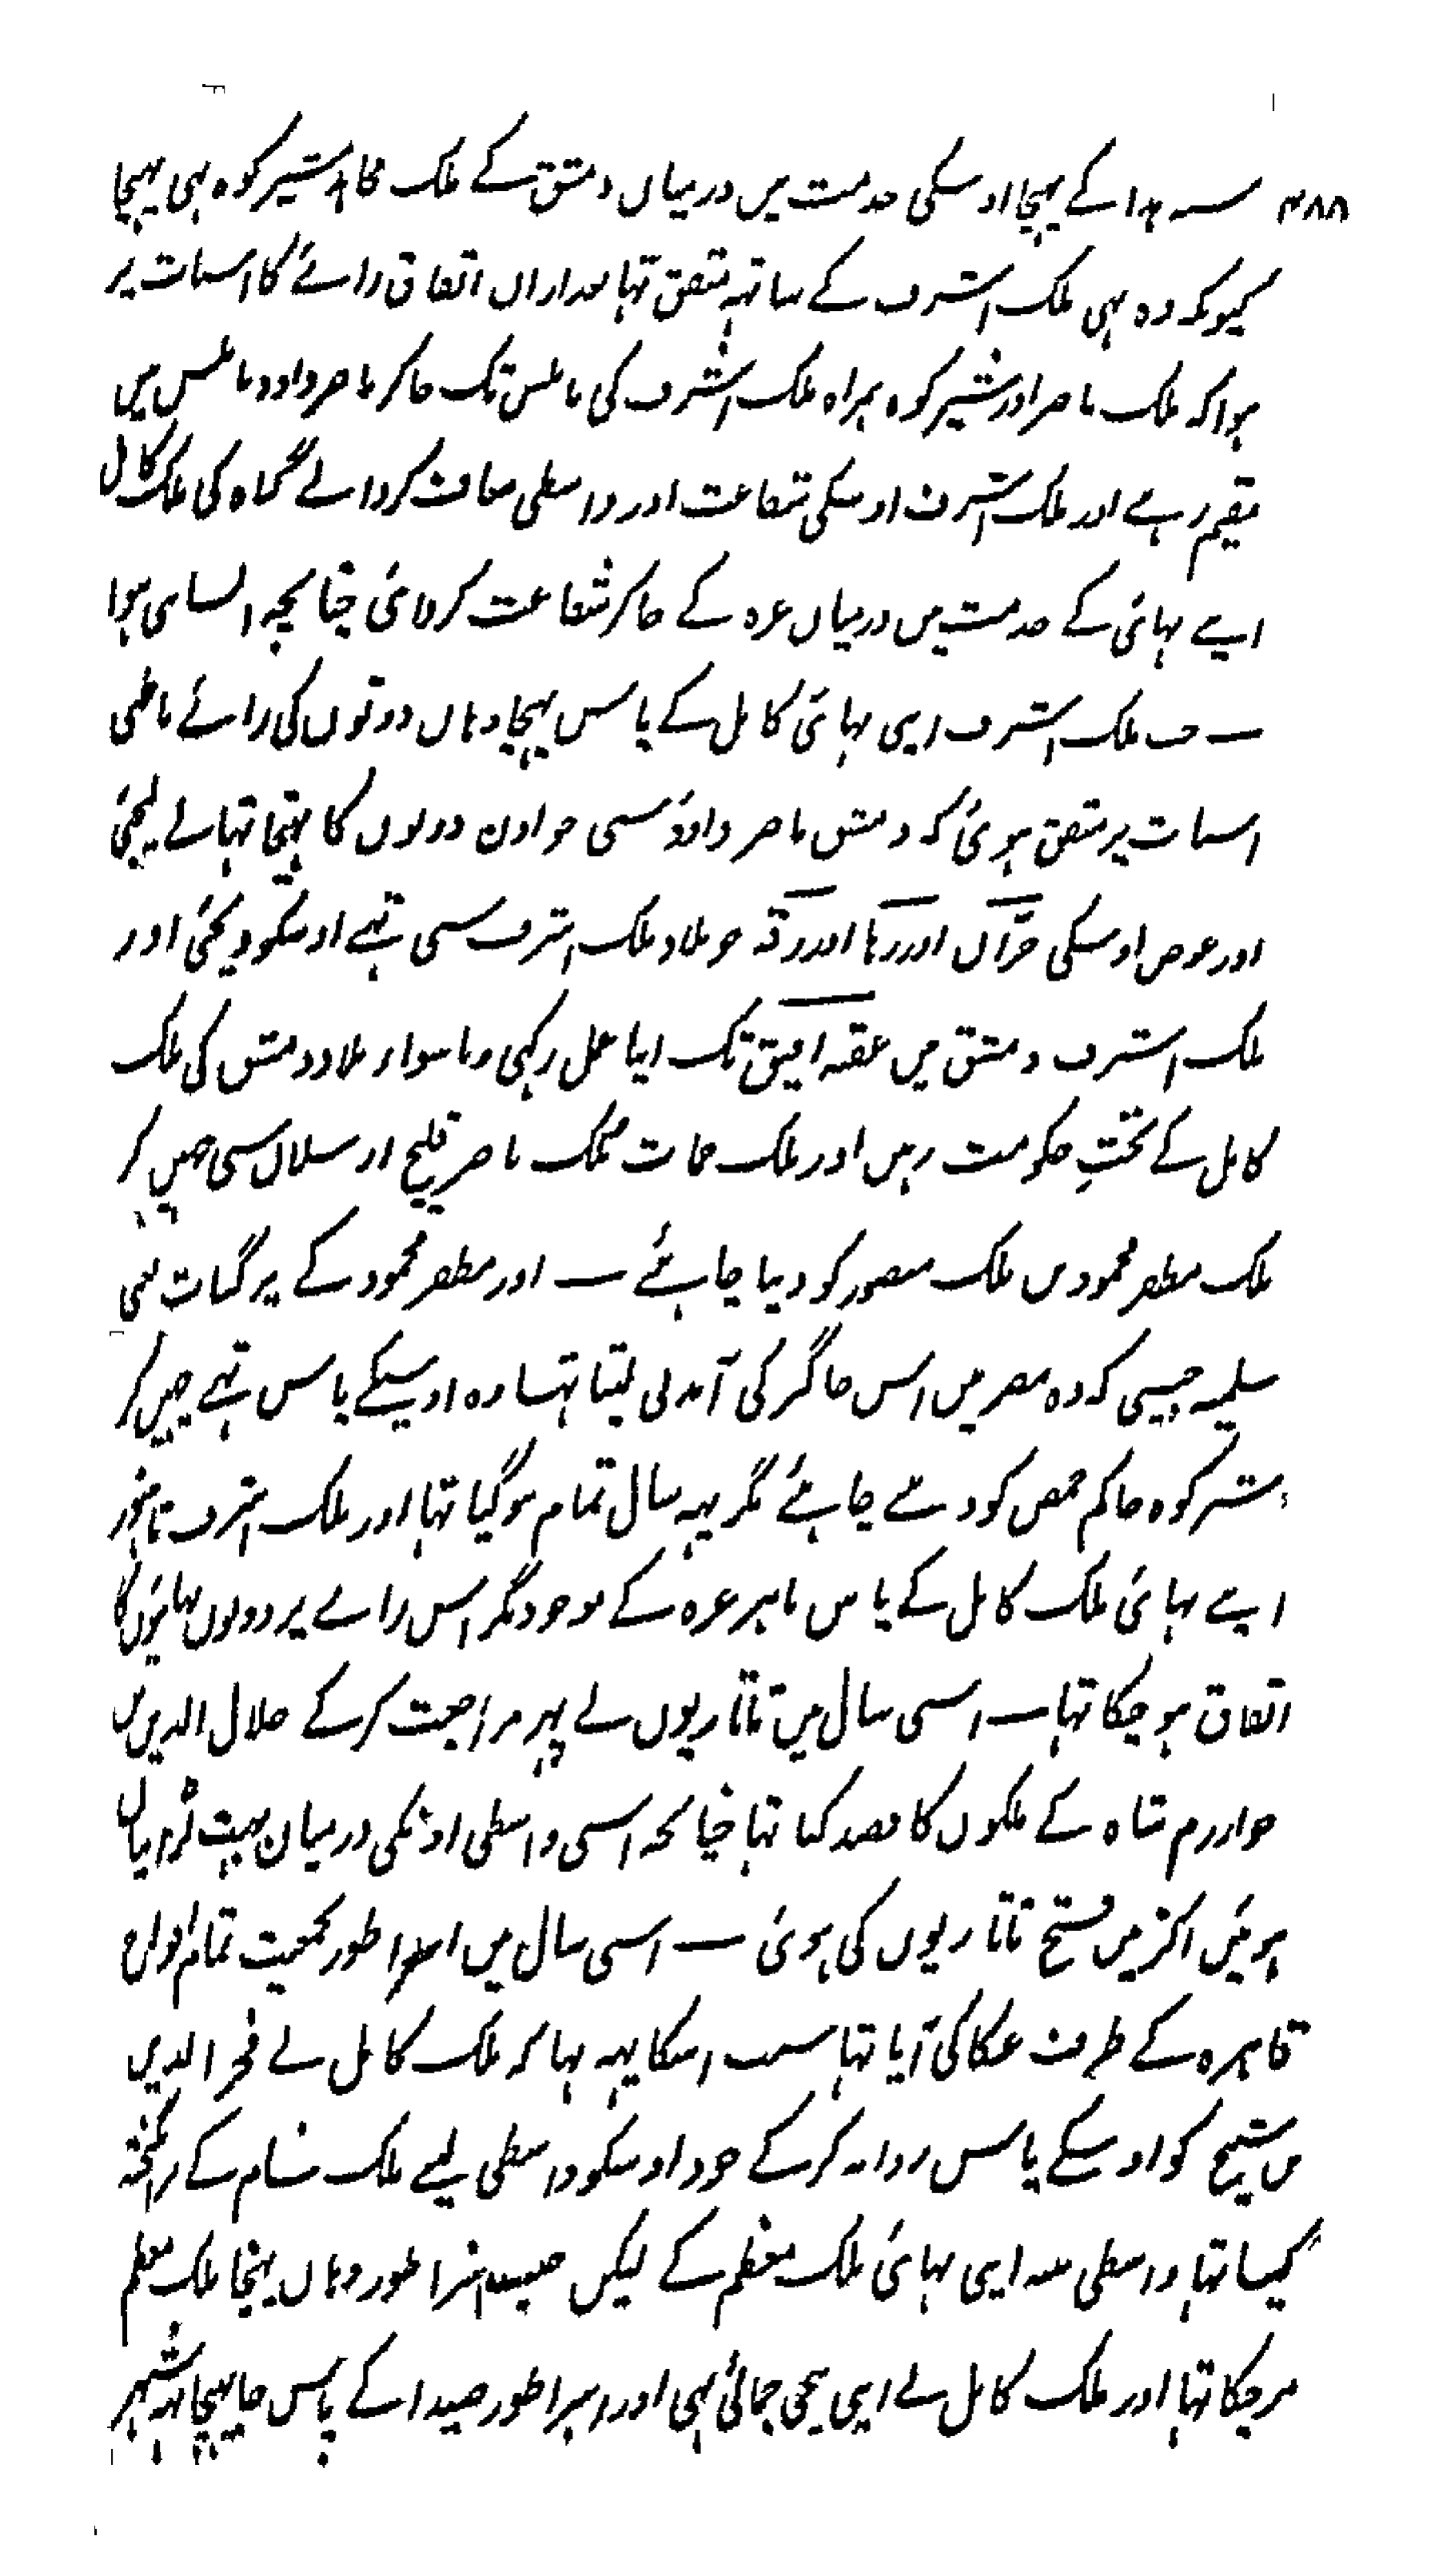 ۴۸۸ سنہ ہذا کے پہنچا اوسکی خدمت میں درمیان دمشق کے ملک مجاہد شیرکوہ بہی پہنچا
کیونکہ وہ بہی ملک اشرف کے ساتہہ متفق تہا بعد ازاں اتفاق رائے کا اسبات پر
ہوا کہ ملک ناصر اور شیرکوہ ہمراہ ملک اشرف کی نابلس تک جاکر ناصر داود نابلس میں
مقیم رہے اور ملک اشرف اوسکی شفاعت اور واسطی معاف کروانے گناہ کی ملک کامل
اپنے بہائی کے خدمت میں درمیان غزہ کے جاکر شفاعت کرمائی چنانچہ ایسا ہی ہوا
— جب ملک اشرف اپنی بہائی کامل کے پاس پہنچا وہاں دونوں کی رائے باطنی
اسبات پر متفق ہوئی کہ دمشق ناصر داؤد سی جو اون دونوں کا بہتیجا تہا لے لیجئی
اور عوض اوسکی حرّان اور رہا اور رقہ جو بلاد ملک اشرف سی تہے اوسکو دیجئی اور
ملک اشرف دمشق میں عقبہ افیق تک اپنا عمل رکہی وماسواء بلاد دمشق کی ملک
کامل کے تحتِ حکومت رہیں اور ملک حمات ملک ناصر قلیج ارسلان سی چہین کر
ملک مظفر محمود بن ملک منصور کو دیا جاہئے — اور مظفر محمود کے پرگنات سی
سلمیہ جیسی کہ وہ مصر میں اس جاگیر کی آمدنی لیتا تہا وہ اوسیکے پاس تہے چہین کر
شیرکوہ حاکم حمص کو دے جاہئے مگر یہہ سال تمام ہوگیا تہا اور ملک اشرف تاہنوز
اپنے بہائی ملک کامل کے پاس باہر غزہ کے موجود مگر اس رائے پر دونوں بہائیوں کا
اتفاق ہوچکا تہا — اسی سال میں تاتاریوں نے پہر مراجعت کرکے جلال الدین
خوارزم شاہ کے ملکوں کا قصد کیا تہا چنانچہ اسی واسطی اونکی درمیان بہت لڑائیاں
ہوئیں اکثر میں فتح تاتاریوں کی ہوئی — اسی سال میں امپراطور بجمعیت تمام افواج
قاہرہ کے طرف عکا کی آیا تہا سبب اسکا یہہ تہا کہ ملک کامل نے فخر الدین
بن شیخ کو اوسکے پاس روانہ کرکے خود اوسکو واسطی لینے ملک شام کے برانگیختہ
کیا تہا واسطی اپنی بہائی ملک معظم کے لیکن جب امپراطور وہاں پہنچا ملک معظم
مرچکا تہا اور ملک کامل نے اپنی اور امپراطور صیدا کے پاس جا پہنچا یہہ شہر